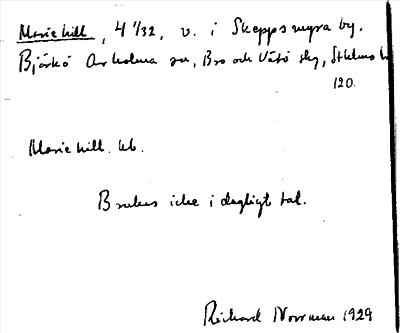 Mariehill, 4 1/32, v. i Skeppsmyra by,
Björkö Arholma sn, Bro och Vätö skg, Sthlms l.
120.
Mariehill. kb.
Brukas icke i dagligt tal.
Richard Norrman 1929